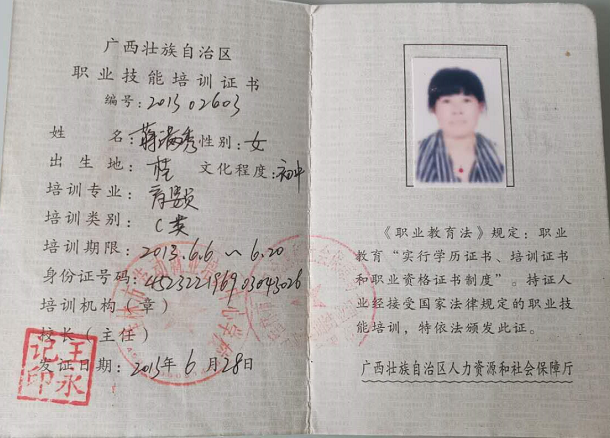 广西壮族自治区
职业技能培训证书
编号:201302603
姓 名:蒋满秀 性别:女
出生地:桂 文化程度:初中
培训专业:育婴员
培训类别:C类
培训期限:2013.6.6~6.20
身份证号码:452322196903043026
培训机构(章)
校长(主任)
发证日期:2013年6月28日
王永
记印
《职业教育法》规定:职业
教育“实行学历证书、培训证书
和职业资格证书制度”。持证人
业经接受国家法律规定的职业技
能培训,特依法颁发此证。
广西壮族自治区人力资源和社会保障厅